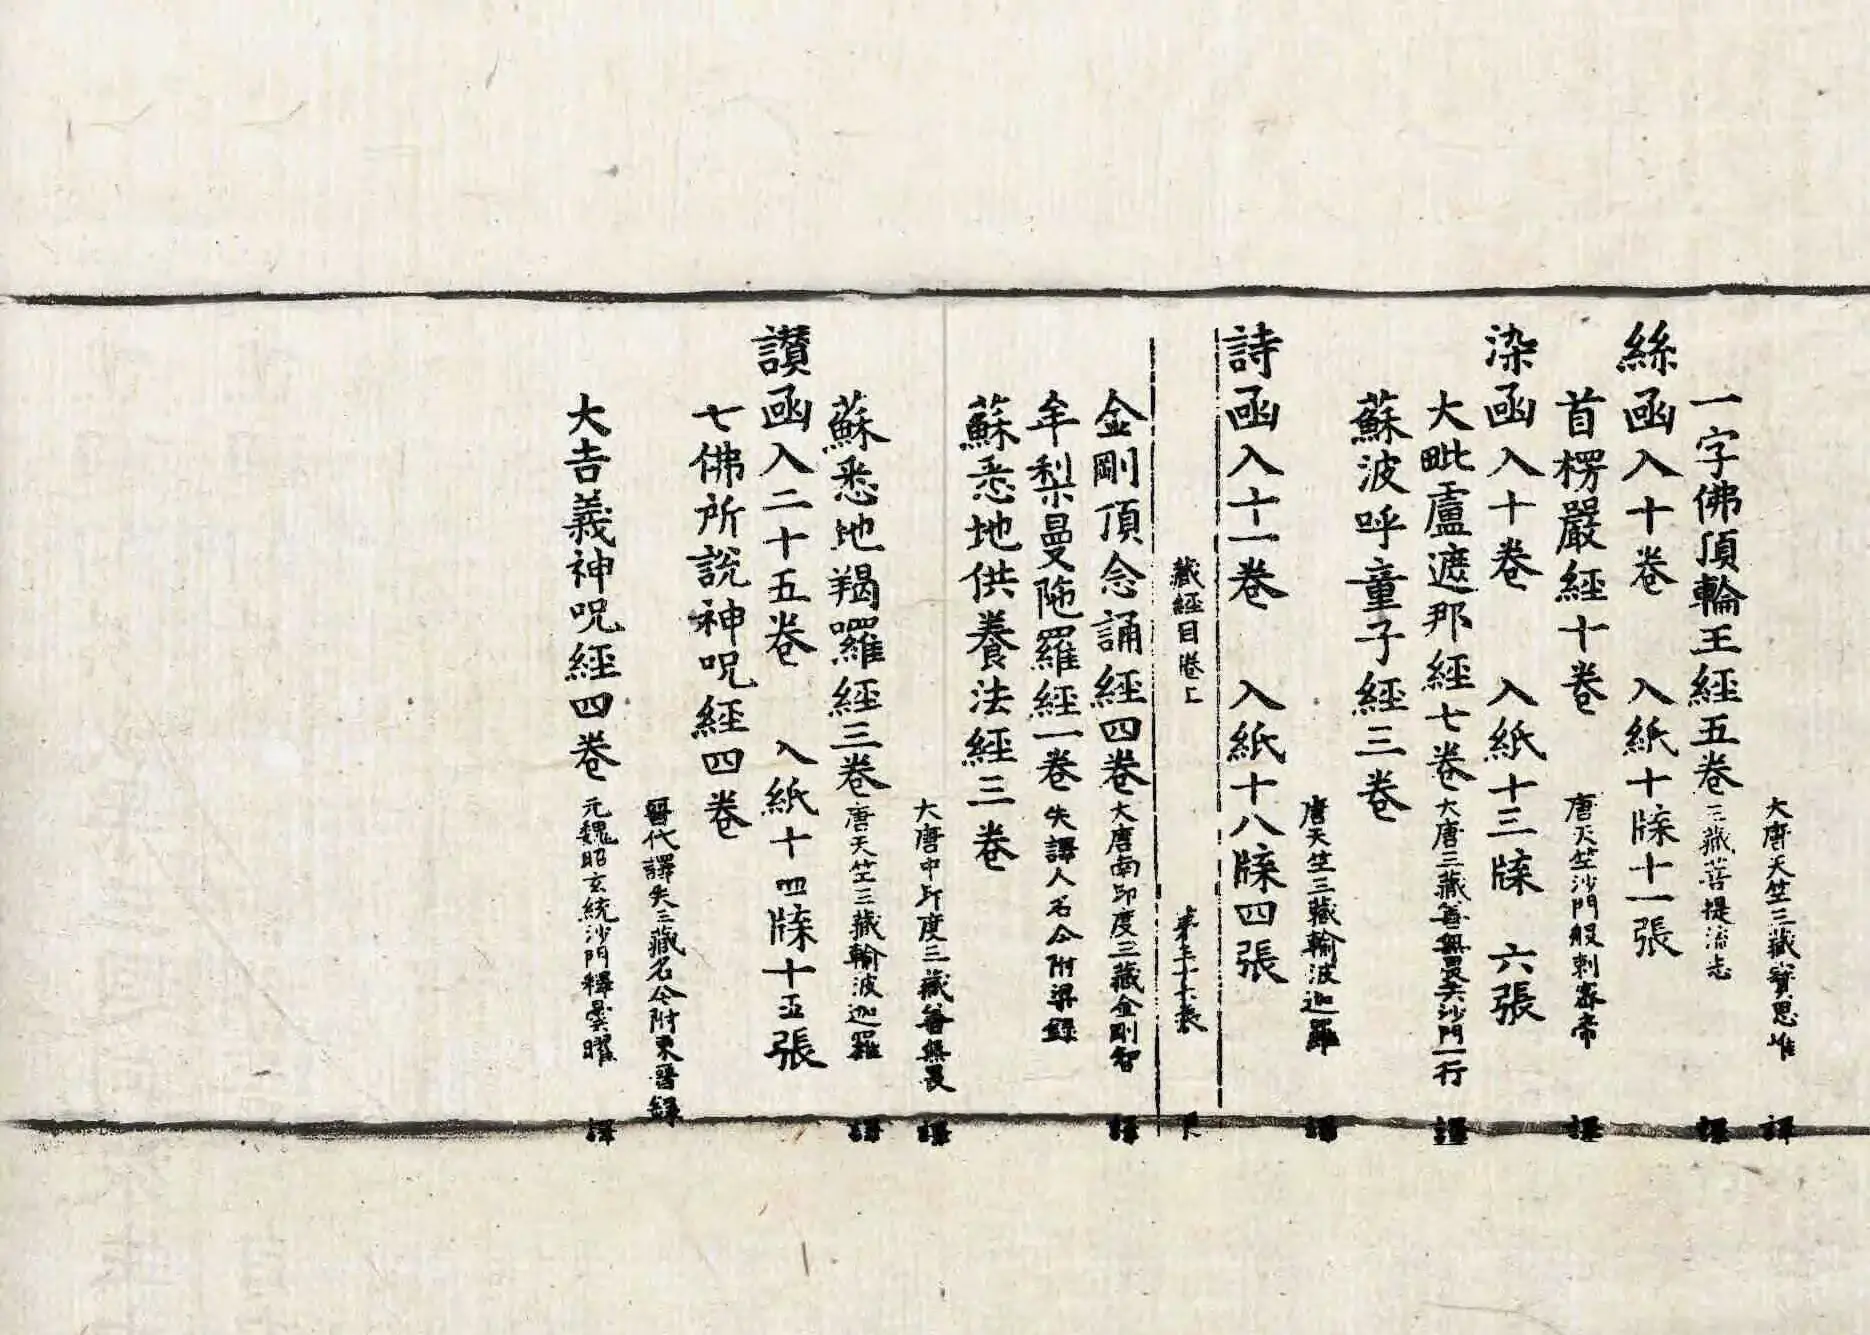 大唐天竺三藏寶思惟 譯
一字佛頂輪王經五卷 三藏菩提流志 譯
絲函入十卷 入紙十牒十一張
首楞嚴經十卷 唐天竺沙門般剌蜜帝 譯
染函入十卷 入紙十三牒 六張
大毗盧遮那經七卷 大唐三藏善無畏共沙門一行 譯
蘇波呼童子經三卷
唐天竺三藏輸波迦羅 譯
詩函入十一卷 入紙十八牒四張
藏經目卷上
金剛頂念誦經四卷 大唐南印度三藏金剛智 譯
牟梨曼陁羅經一卷 失譯人名今附梁錄
蘇悉地供養法經三卷
大唐中印度三藏善無畏 譯
蘇悉地羯囉經三卷 唐天竺三藏輸波迦羅 譯
讃函入二十五卷 入紙十四牒十五張
七佛所說神呪經四卷
晉代譯失三藏名今附東晉録
大吉義神呪經四卷 元魏昭玄統沙門釋曇曜 譯